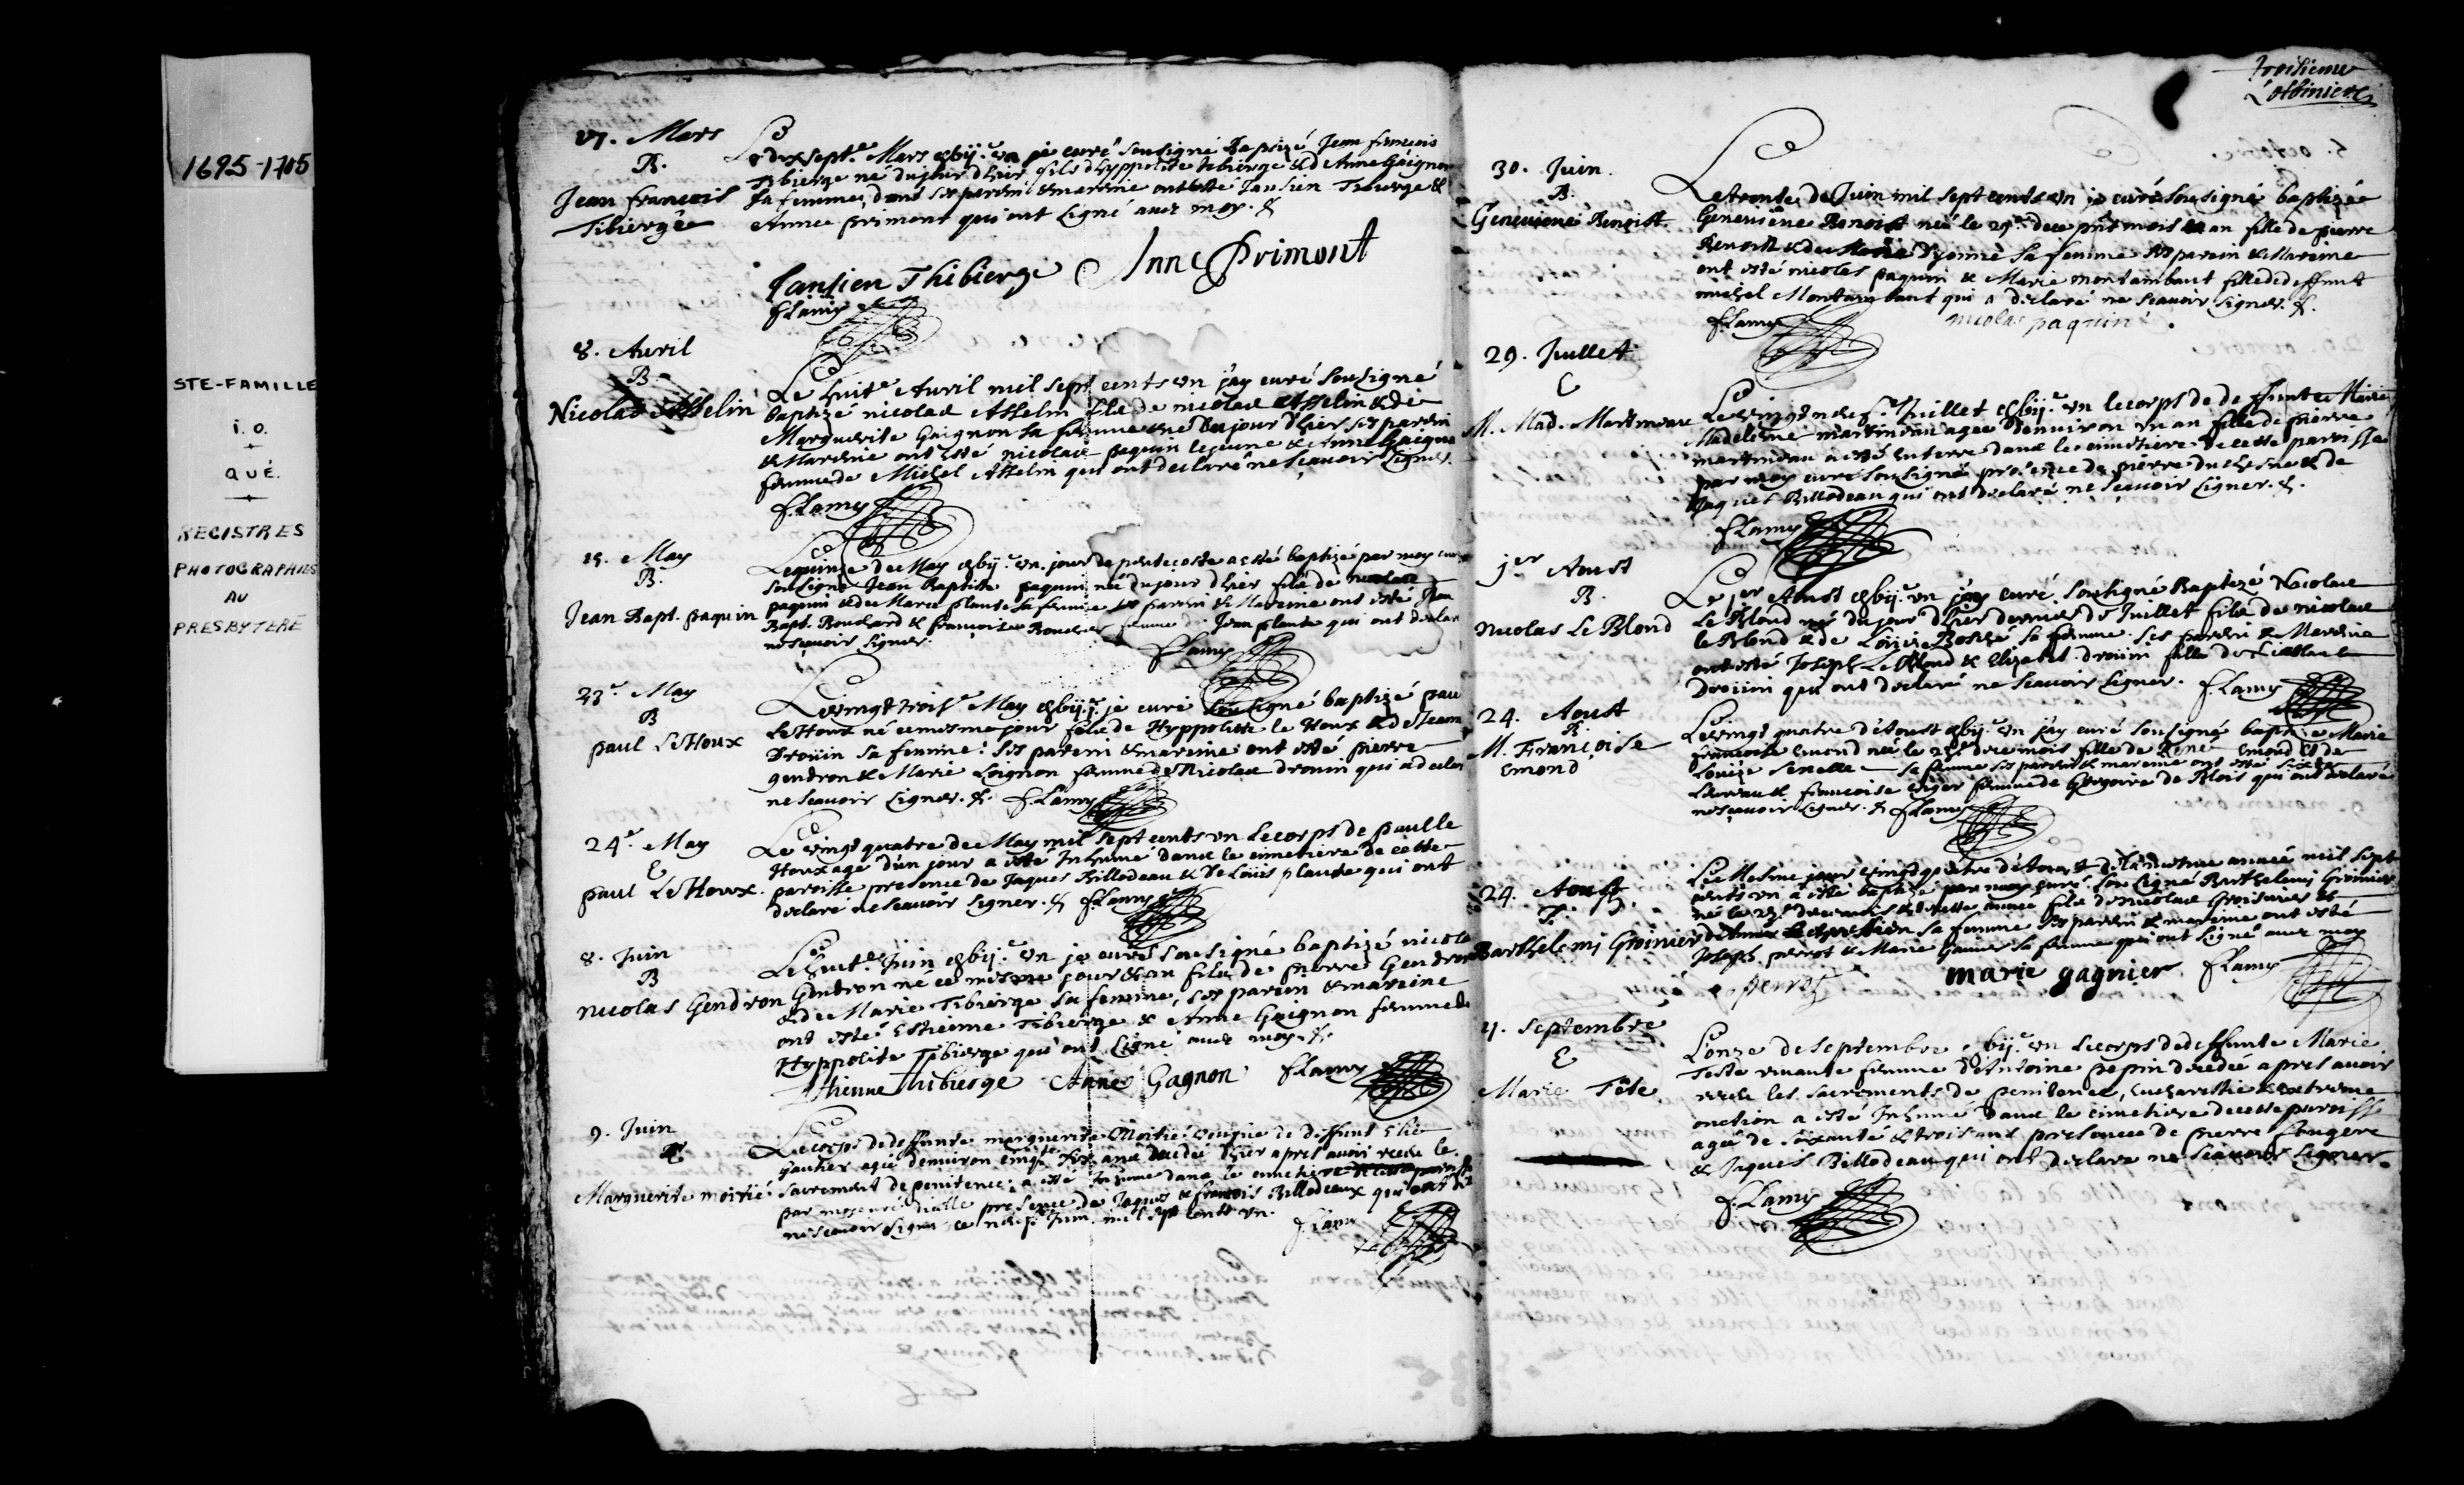 1695-1705
STE-FAMILLE
i. o.
QUÉ.
REGISTRES
PHOTOGRAPHIÉS
AU
PRESBYTERE
17. Mars
B.
Jean francois
Tibierge
Le dix sept.e Mars mbij.c vn je curé Sousigné Baptizé Jean francois
Tibierge né du jour d'hier fils d'hyppolite tibierge & d Anne Gaignon
Sa femme, dont Ses parein & mareine ont esté Jansien Tibierge &
Annee primont qui ont signé auec moy. &
Jansien Thibierge Anne Primont
f.Lamy
8. Auril
B.
Nicolas Asselin
Le huit.e Auril mil sept cents vn j'ay curé Sousigné
baptizé nicolas Asselin fils de nicolas Asselin & de
Marguerite Gaignon Sa femme né du jour d'hier ses parein
& Mareine ont esté nicolas paquin le jeune & Anne Gaignon
femme de Michel Asselin qui ont declaré ne Scauoir Signer.
f.Lamy
15. May
B.
Jean Bapt. paquin
Le quinze de May mbij.c vn. jour de pentecoste a esté baptizé par moy curé
Sousigné Jean Baptiste paquin né du jour d'hier fils de nicolas
paquin & de Marie plante Sa femme Ses parein & Mareine ont esté Jean
Bapt. Bouchard & francoise Boucher femme de Jean plante qui ont declaré
ne scauoir signer.
f.Lamy
23.e May
B
paul LeHoux
Le vingt trois.e May mbij.c j. je curé Sousigné baptizé paul
LeHoux né ce mesme jour fils de Hyppolitte le Houx & d Jeanne
Drouin Sa femme: Ses parein & mareine ont esté pierre
gendron & Marie Loignon femme de Nicolas drouin qui a declaré
ne Scauoir Signer. &. f.Lamy
24.e May
E
paul LeHoux.
Le vingt quatre de May mil Sept cents vn Le corps de paul le
Houx agé d'un jour a esté Inhumé dans le cimetiere de cette
paroisse presence de Jaques Billodeau & De Loüis plante qui ont
declaré ne Scauoir Signer. & f.Lamy
8. Juin
B
nicolas Gendron
Le huit.e Juin mbij.c vn je curé Sousigné baptizé nicolas
Gendron né ce mesme jour & an fils de pierre Gendron
& de Marie Tibierge Sa femme, Ses parein & mareine
ont esté Estienne Tibierge & Anne Gaignon femme de
Hyppolite Tibierge qui ont Signé auec moy. &.
Ethienne Thibierge Anne Gagnon f.Lamy
9. Juin
Marguerite moitié
Le corps de deffunte marguerite Moitié veuque de deffunt Elie
Gautier agée d'enuiron cinqte. ans decedée hier apres auoir receu le
Sacrement de penitence, a esté Inhumé dans le cimetiere
par presence de Jaques & francois Billodeaux qui ont dit
ne scauoir Signer ce neuf.e Juin mil Sept cents vn.
f.Lamy
troisieme
Lotbiniere
30. Juin.
B.
Geneuieue Benoist.
Le trente de Juin mil sept cents vn je curé Sousigné baptizée
Geneuiéue Benoist née le 29.e de ce pnt mois & an fille de pierre
Benoist & de Sa femme Ses parein & Mareine
ont esté nicolas paquin & Marie montambaut fille de deffunt
michel Montambaut qui a declaré ne Scauoir Signer. &.
f.Lamy nicolas paquin
29. Juillet
E
M. Mad. Martineau
Le vingt neuf.e Juillet mbij.c vn le corps de deffunte Marie
Madeleine martineau agée d'enuiron vn an fille de pierre
martineau a esté enterré dans le cimetiere de cette paroisse
par moy curé Sousigné presence de pierre duchesne & de
Jaques Billodeau qui ont declaré ne Scauoir Signer. &.
f.Lamy
j.er Aoust
B.
Nicolas Le Blond
Le j.er Aoust mbij.c vn j'ay curé Sousigné Baptizé Nicolas
Le Blond né du jour d'hier dernier de Juillet fils de nicolas
le Blond & de Sa femme. Ses parein & Mareine
ont esté Joseph Le Blond & Elizabet drouin fille de
Droüin qui ont declaré ne Scauoir Signer. f.Lamy
24. Aoust
B
M. Françoise
Emond
Le vingt quatre d'Aoust mbij.c vn j'ay curé Sousigné baptizée Marie
francoise emond née le 23.e de ce mois fille de René emond & de
Louïze Senelle Sa femme Ses parein & mareine ont esté
& francoise femme de Gregoire de Blois qui ont declaré
ne scauoir Signer. & f.Lamy
24. Aoust.
Barthelemi Groinier
Le Mesme jour vingt quatre d'Aoust de la mesme année mil Sept
cents vn a esté baptizé par moy curé Sousigné Barthelemi Groinier
né le 23.e de ce mois & de cette année fils de nicolas Groinier &
d'Anne Sa femme Ses parein & mareine ont esté
Joseph perrot & Marie Sa femme qui ont Signé auec moy
perrot marie gagnier f.Lamy
11. Septembre
E
Marie Tête.
L'onze de Septembre mbij.c vn Le corps de deffunte Marie
Teste viuante femme d'Antoine pepin decedée apres auoir
receu les Sacrements de penitence, Eucharistie & extreme
onction a esté Inhumé dans le cimetiere de cette paroisse
agée de soixante & trois ans presence de pierre fougere
& Jaques Billodeau qui ont declaré ne Scauoir Signer.
f.Lamy